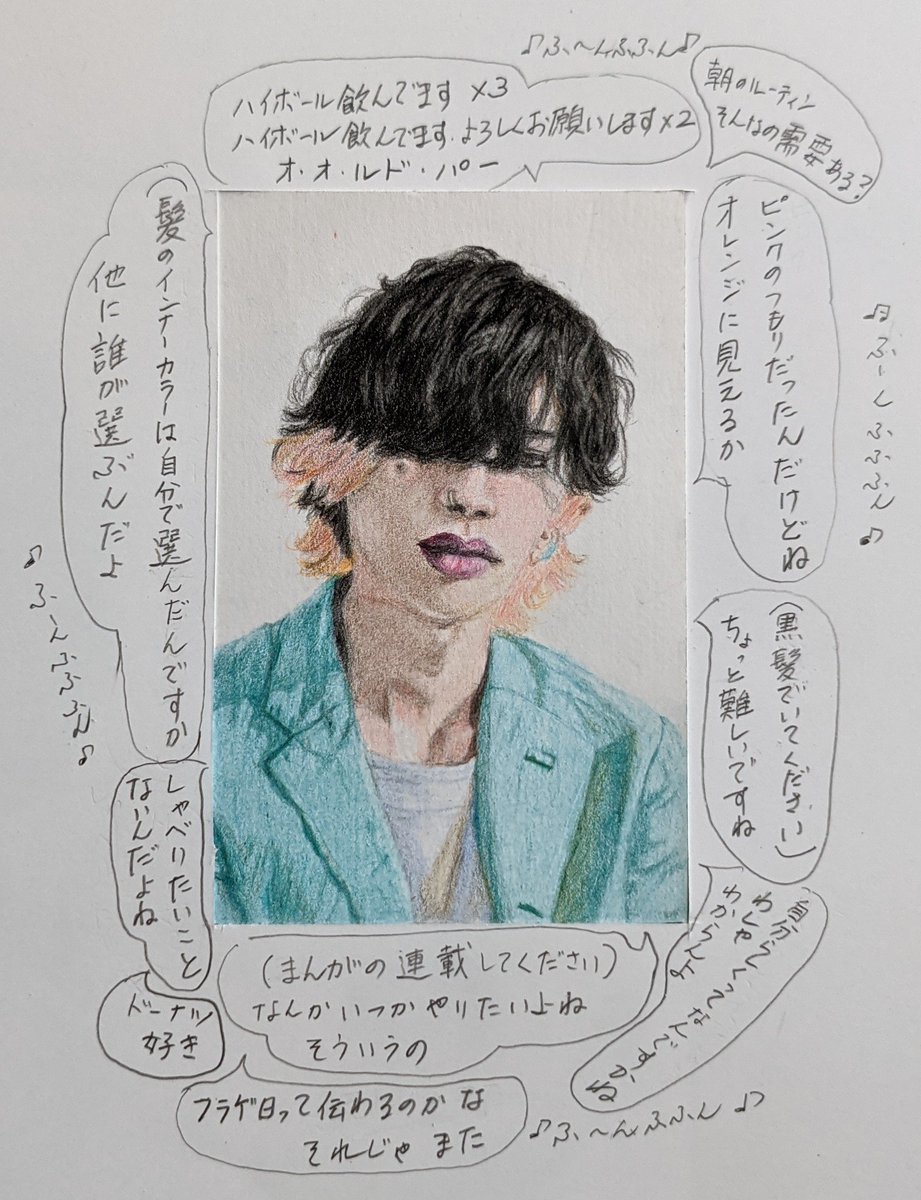 ♪ふ〜んふふん♪
ハイボール飲んでます×3
ハイボール飲んでます.よろしくお願いします×2
オ・オ・ルド・パー
朝のルーティン
そんなの需要ある?
ピンクのつもりだったんだけどね
オレンジに見えるか
♫ふーんふふふん♪
(黒髪でいてください)
ちょっと難しいですね
自分らしくってなんですかね
わしゃ
わからんよ
髪のインナーカラーは自分で選んだんですか
他に誰が選ぶんだよ
♪ふーんふふふん♪
しゃべりたいこと
ないんだよね
ドーナツ
好き
(まんがの連載してください)
なんかいつかやりたいよね
そういうの
フラゲ日って伝わるのかな
それじゃまた
♪ふ〜んふふん♪